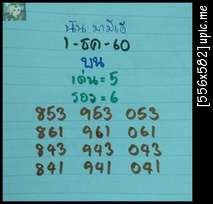 นัน มามีเฮ
1-ธค-60
บน
เด่น=5
รอง=6
853 953 053
861 961 061
843 943 043
841 941 041
[556x582] upic.me